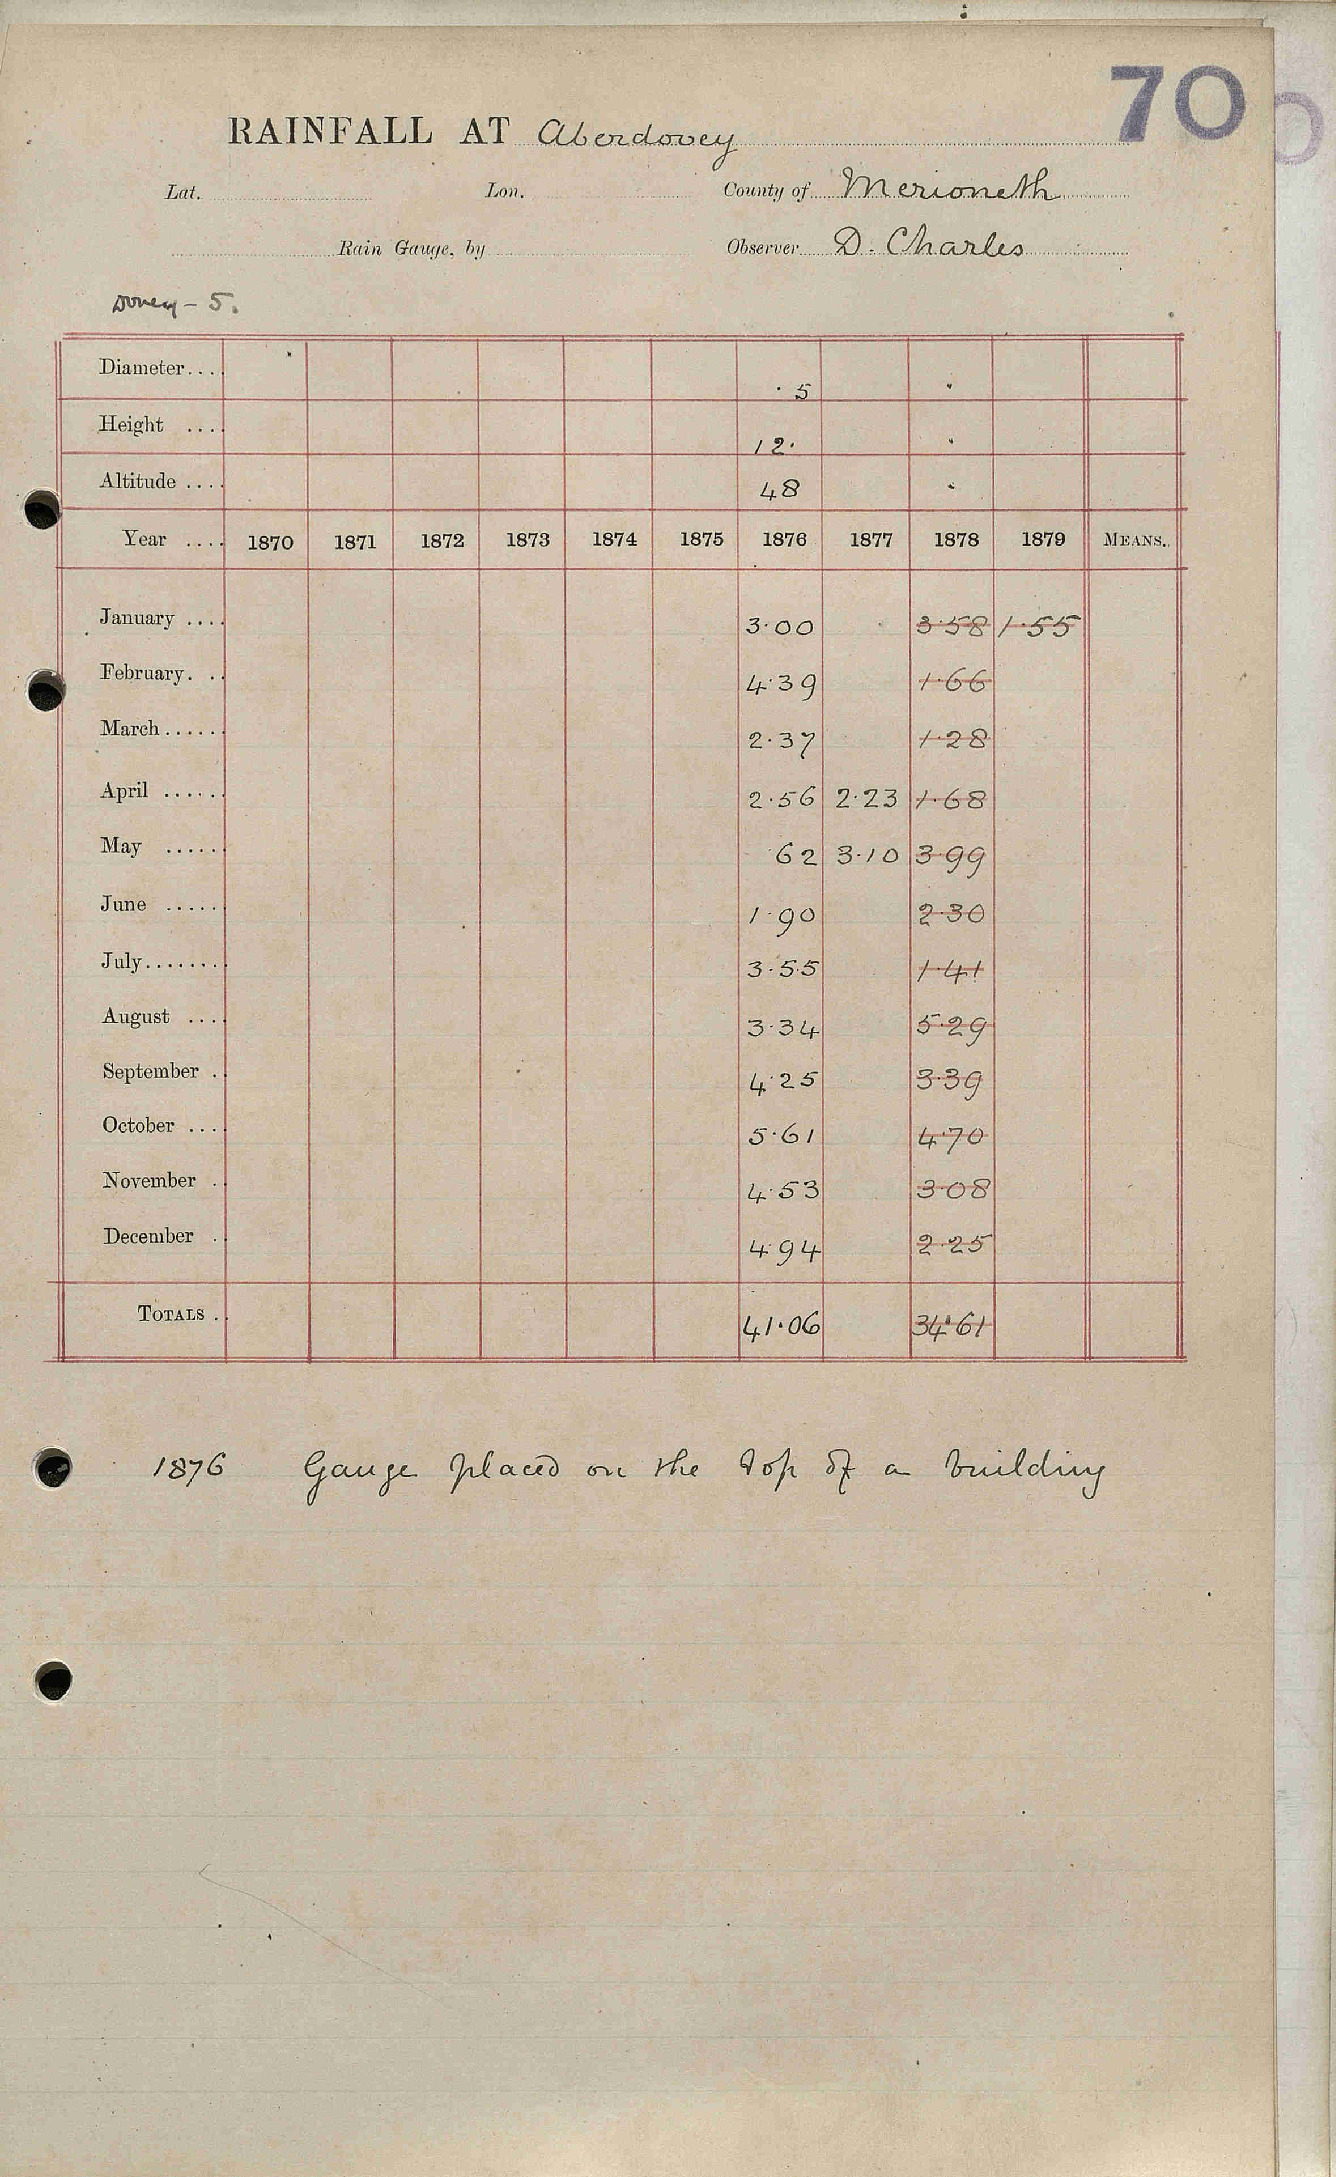 70
RAINFALL AT Aberdovey
Lat. Lon. County of Merioneth
Rain Gauge, by Observer D. Charles
Dovey - 5.
Diameter... 5 "
Height ... 12. "
Altitude .... 48 "
Year .... 1870 1871 1872 1873 1874 1875 1876 1877 1878 1879 MEANS..
January .... 3.00 3.58 1.55
February. .. 4.39 1.66
March...... 2.37 1.28
April ...... 2.56 2.23 1.68
May ..... 62 3.10 3.99
June ..... 1.90 2.30
July....... 3.55 1.41
August .... 3.34 5.29
September . 4.25 3.39
October ... 5.61 4.70
November . 4.53 3.08
December . 4.94 2.25
TOTALS . 41.06 34.61
1876 Gauge placed on the top of a building